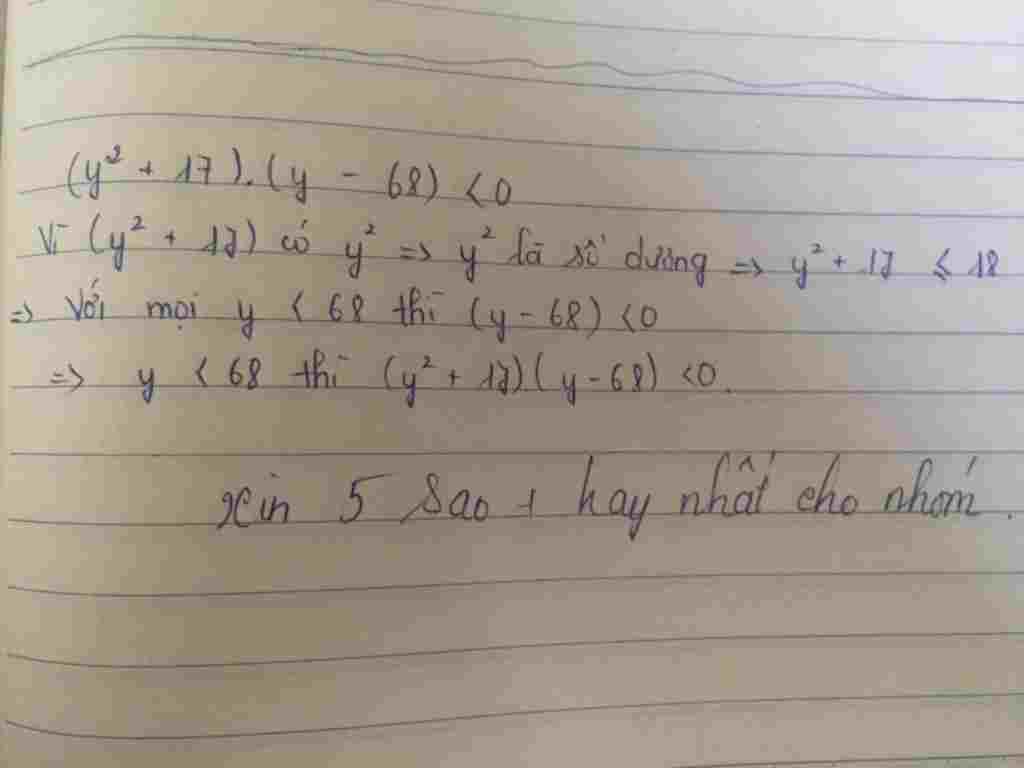 (y² + 17).(y - 68) < 0
Vì (y² + 17) có y² => y² là số dương => y² + 17 ≤ 18
=> Với mọi y < 68 thì (y - 68) < 0
=> y < 68 thì (y² + 17)(y - 68) < 0.
xin 5 sao + hay nhất cho nhóm.